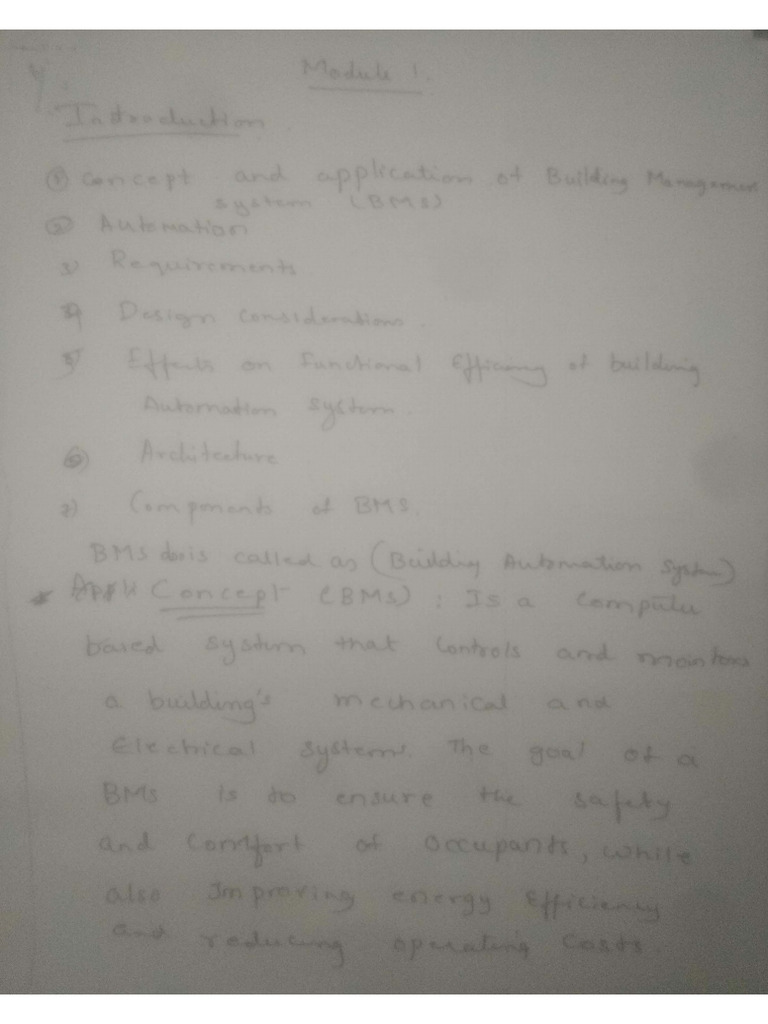 Module 1.
Introduction
① Concept and application of Building Management
system (BMS)
② Automation
3) Requirements
4) Design Considerations.
5) Effects on Functional Efficiency of building
Automation system.
⑥ Architecture
7) Components of BMS.
BMS is called as (Building Automation System)
* Concept (BMS) : Is a Computer
based system that Controls and monitors
a building's mechanical and
Electrical systems. The goal of a
BMS is to ensure the safety
and Comfort of Occupants, while
also Improving energy Efficiency
and reducing operating Costs.